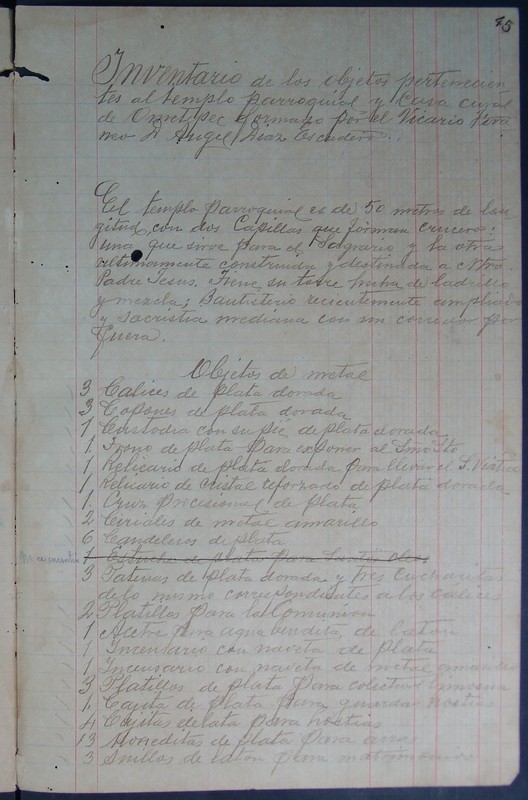 45
Inventario de los objetos pertenecien
tes al templo parroquial y Casa cural
de Ometepec formado por el Vicario Forá
neo D. Angel Diaz Escudero.
El templo parroquial es de 50 metros de lon
gitud, con dos Capillas que forman crucero:
una que sirve para el Sagrario y la otra
ultimamente construida y destinada a Ntro.
Padre Jesus. Tiene su torre hecha de ladrillo
y mezcla; Bautisterio recientemente ampliado
y sacristia mediana con un corredor por
fuera.
Objetos de metal
3 Calices de plata dorada
3 Copones de plata dorada
1 Custodia con su pié de plata dorada
1 Trono de plata para exponer al Smo Sto
1 Relicario de plata dorada para llevar el S. Viatico
1 Relicario de cristal reforzado de plata dorada
1 Cruz procesional de plata
2 Ciriales de metal amarillo
6 Candeleros de plata
1 Estuche de plata para Santos Oleos
3 Patenas de plata dorada y tres cucharitas
de lo mismo correspondientes a los calices
2 Platillos para la Comunion
1 Acetre para agua bendita, de laton
1 Incensario con naveta de plata
1 Incensario con naveta de metal amarillo
3 Platillos de plata para colectar limosna
1 Cajita de plata para guardar hostias
4 Cajitas de lata para hostias
13 Moneditas de plata para arras
3 Anillos de laton para matrimonios